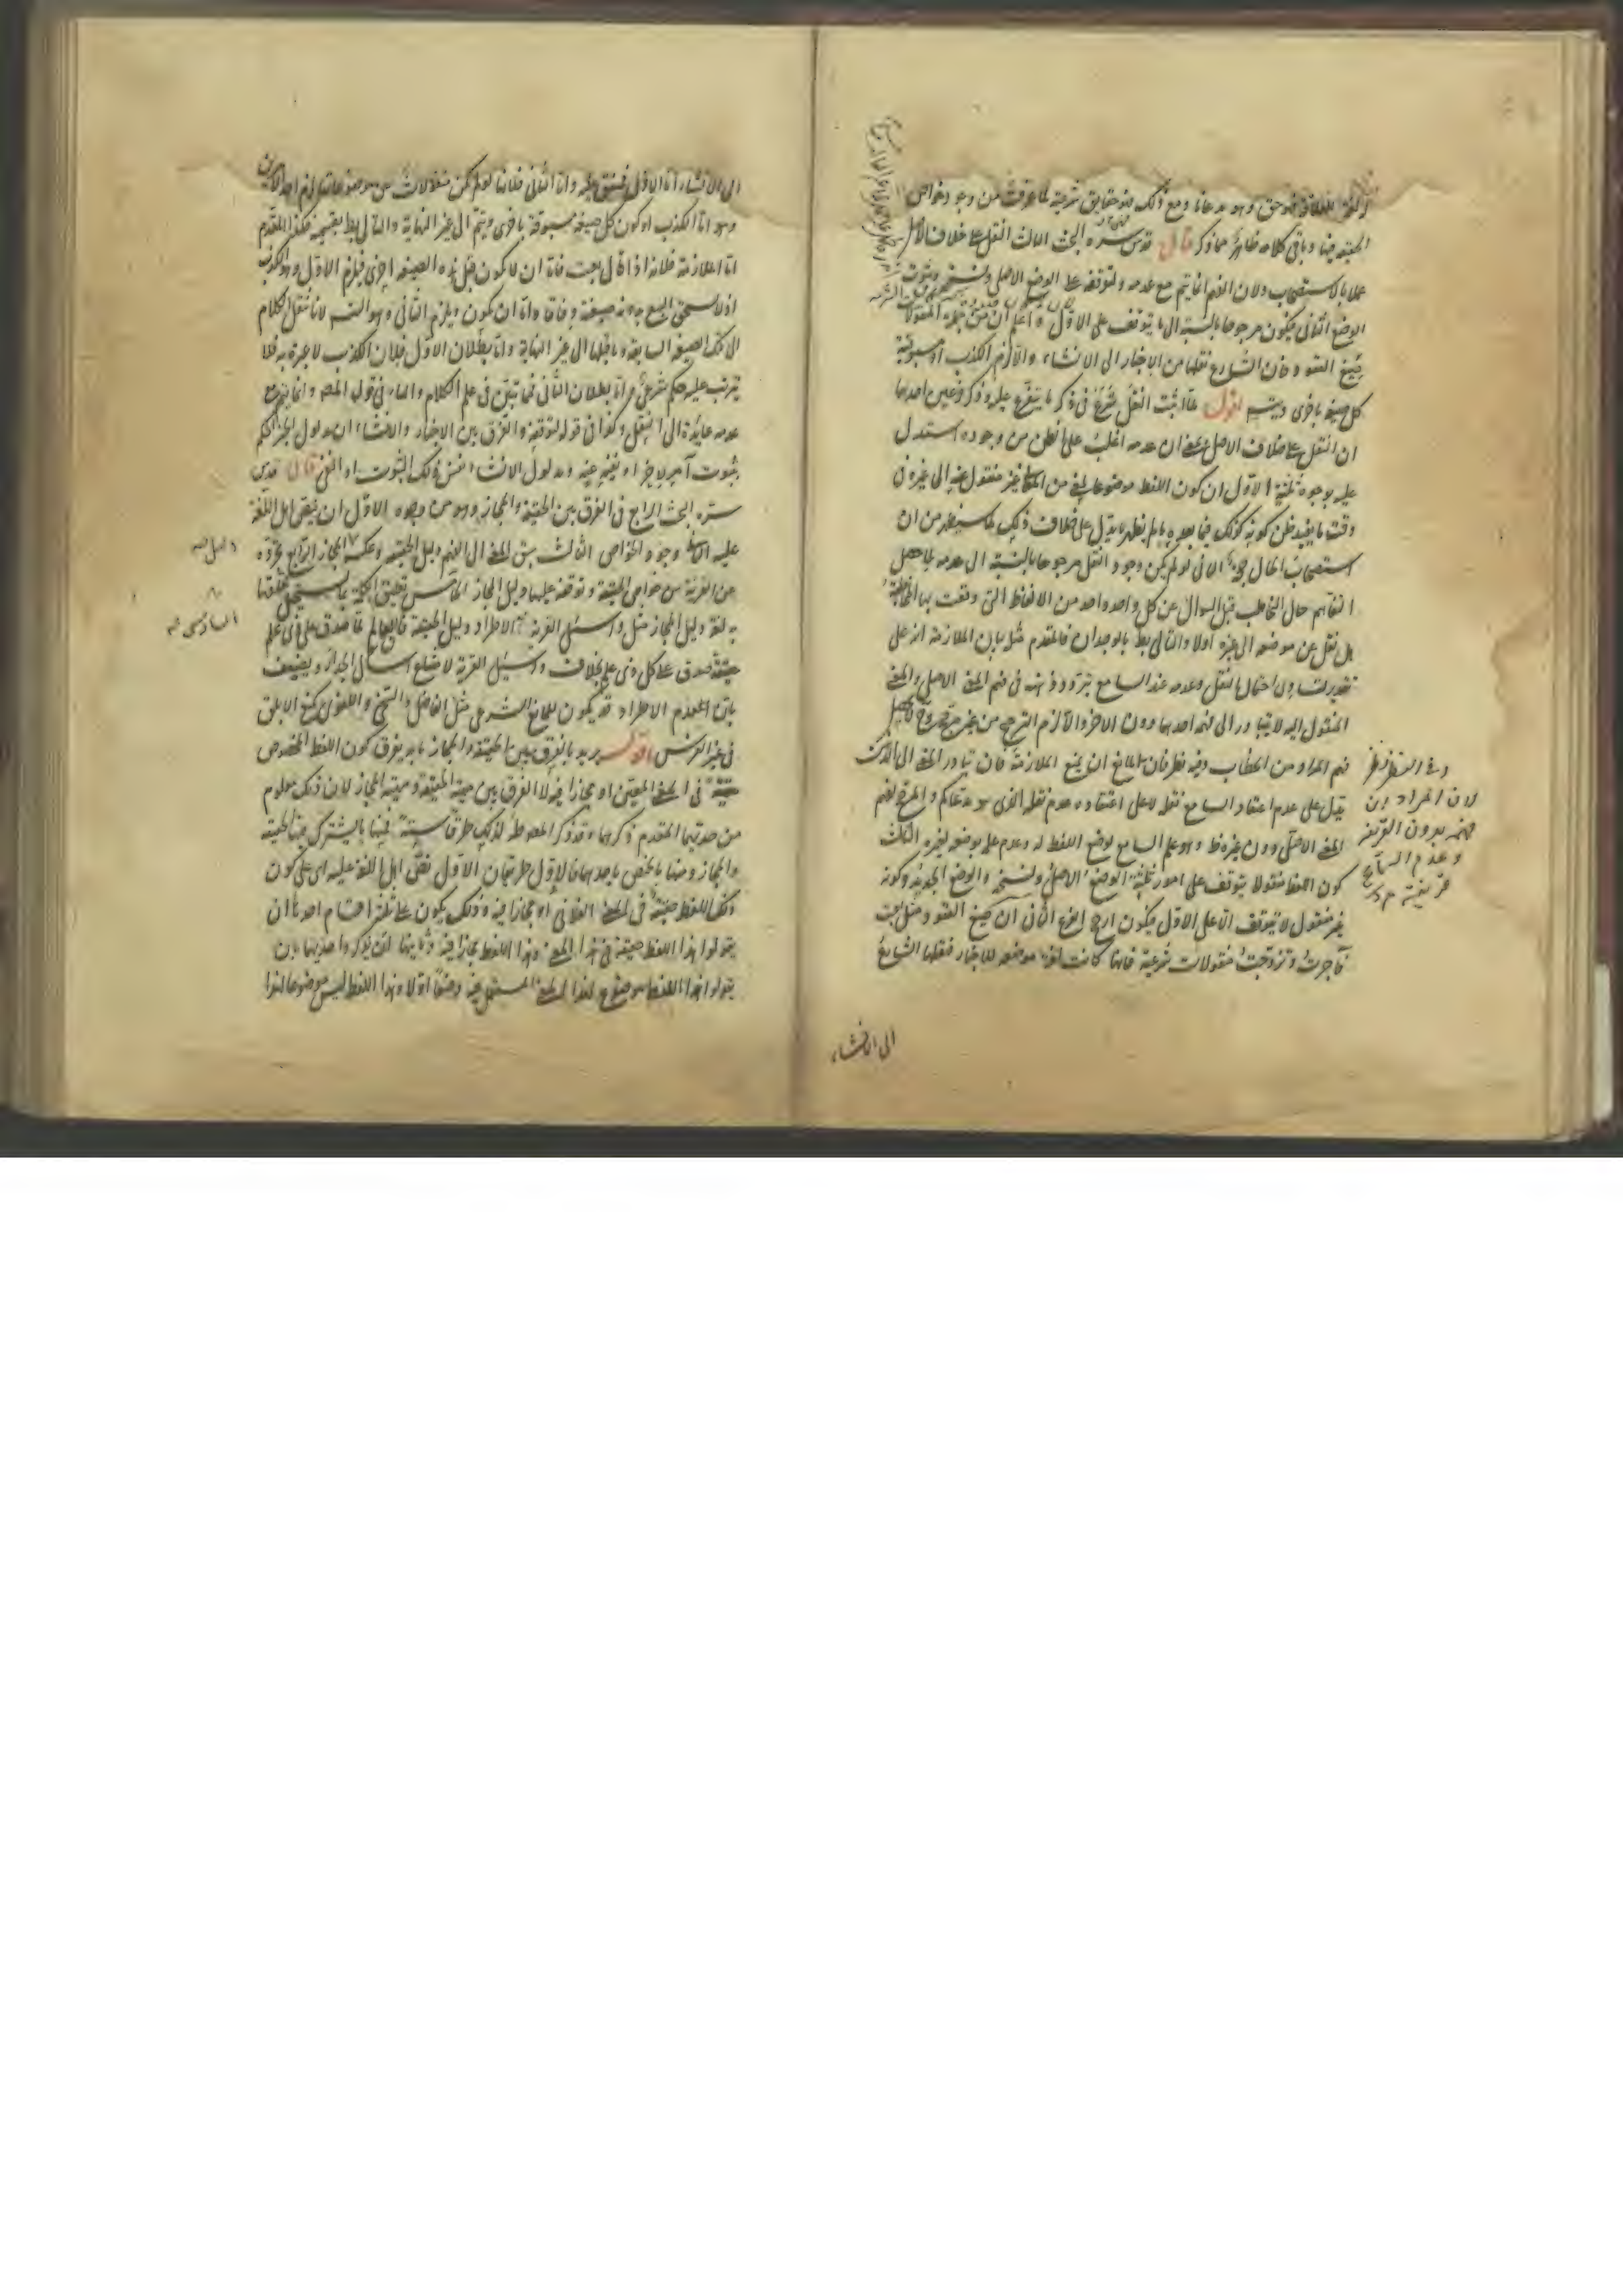 الحقيقة فيها وباقي كلامه ظاهر مما ذكر قال قدس سره البحث الثالث النقل على خلاف الاصل
عملا بالاستصحاب ولان الفهم انما يتم مع عدمه ولتوقفه على الوضع الاصلي ونسخه وثبوت
الوضع الثاني فيكون مرجوحا بالنسبة الى ما يتوقف على الاول واعلم ان من جملة المنقولات
صيغ العقود فان الشارع نقلها من الاخبار الى الانشاء والا لزم الكذب او مسبوقية
كل صيغة باخرى ويتسلسل اقول لما اثبت النقل شرع في ذكر ما يتفرع عليه وذكر فرعين احدهما
ان النقل على خلاف الاصل بمعنى ان عدمه اغلب على الظن من وجوده استدل
عليه بوجوه ثلثة الاول ان كون اللفظ موضوعا لمعنى من المعاني غير منقول عنه الى غيره في
وقت ما يفيد ظن كونه كذلك فيما بعده ما لم يظهر ما يدل على خلاف ذلك لما سيظهر من ان
استصحاب الحال حجة الثاني لو لم يكن وجود النقل مرجوحا بالنسبة الى عدمه لما حصل
التفاهم حال التخاطب قبل السؤال عن كل واحد واحد من الالفاظ التي وقعت بها المخاطبة
هل نقل عن موضعه الى غيره اولا والتالي بط بالوجدان فالمقدم مثله بيان الملازمة انه على
تقدير تساوي احتمال النقل وعدمه عند السامع يتردد ذهنه في فهم المعنى الاصلي والمعنى
المنقول اليه لا يتبادر الى فهمه احدهما دون الاخر والا لزم الترجيح من غير مرجح
فهم المراد من الخطاب وفيه نظر فان للمانع ان يمنع الملازمة فان تبادر المعنى الى الذهن
يدل على عدم اعتقاد السامع نقله لا على اعتقاده عدم نقله الذي هو مدعاكم والمرجح لفهم
المعنى الاصلي دون غيره ظ وهو علم السامع بوضع اللفظ له وعدم علمه بوضعه لغيره الثالث
كون اللفظ منقولا يتوقف على امور ثلثة الوضع الاصلي ونسخه والوضع الجديد وكونه
غير منقول لا يتوقف الا على الاول فيكون ارجح الفرع الثاني ان صيغ العقود مثل بعت
وآجرت وتزوجت منقولات شرعية فانها كانت لغة موضوعة للاخبار فنقلها الشارع
لان المراد ان
فهمه بدون القرينة
وعدم السامع
قرينة
الى الانشاء
الى الانشاء اما الاول فمتفق عليه واما الثاني فلانها لو لم تكن منقولات عن موضوعاتها لزم احد الامرين
وهو اما الكذب او كون كل صيغة مسبوقة باخرى ويتم الى غير النهاية والتالي بط بقسميه فكذا المقدم
اما الملازمة فلانه اذا قال بعت فاما ان لا يكون قبل هذه الصيغة اخرى فيلزم الاول وهو الكذب
اذ لا يتحقق البيع بدون صيغة وفاقا واما ان يكون ويلزم الثاني وهو التسلسل لانا ننقل الكلام
الى تلك الصيغة السابقة وما قبلها الى غير النهاية واما بطلان الاول فلان الكذب لا عبرة به فلا
يترتب عليه حكم شرعي واما بطلان الثاني فلما تبين في علم الكلام والهاء في قول المصنف وانما يتم مع
عدمه عائدة الى النقل وكذا في قوله لتوقفه والفرق بين الاخبار والانشاء ان مدلول الخبر الحكم
بثبوت امر لاخر او نفيه عنه ومدلول الانشاء نفس ذلك الثبوت او النفي قال قدس
سره البحث الرابع في الفرق بين الحقيقة والمجاز وهو من وجوه الاول ان ينص اهل اللغة
عليه الثاني وجود الخواص الثالث سبق المعنى الى الفهم دليل الحقيقة وعكسه المجاز الرابع تجرده
عن القرينة من خواص الحقيقة وتوقفه عليها دليل المجاز الخامس تعليق الكلمة بما يستحيل تعلقها
به لغة دليل المجاز مثل واسئل القرية الاطراد دليل الحقيقة فالعالم لما صدق على ذي علم
حقيقة صدق على كل ذي علم بخلاف واسئل القرية لامتناع اسأل الجدار ويضعف
بان عدم الاطراد قد يكون لمانع الشرعي مثل الفاضل والسخي واللغوي كمنع الابلق
في غير الفرس اقول يريد بالفرق بين الحقيقة والمجاز ما به يعرف كون اللفظ المخصوص
حقيقة في المعنى المعين او مجازا فيه لا الفرق بين مهية الحقيقة ومهية المجاز لان ذلك معلوم
من حديهما المتقدم ذكرهما وقد ذكر المصنف لذلك طرقا ستة فمنها ما يشترك بين الحقيقة
والمجاز ومنها ما يختص باحدهما فالاول طريقان الاول نص اهل اللغة عليه اي على كون
ذلك اللفظ حقيقة في المعنى الفلاني او مجازا فيه وذلك يكون على ثلثة اقسام احدها ان
يقولوا هذا اللفظ حقيقة في هذا المعنى وهذا اللفظ مجاز فيه وثانيها ان يذكروا حديهما بان
يقولوا هذا اللفظ موضوع لهذا المعنى المستعمل فيه وضعا اولا وهذا اللفظ ليس موضوعا لهذا
السادس